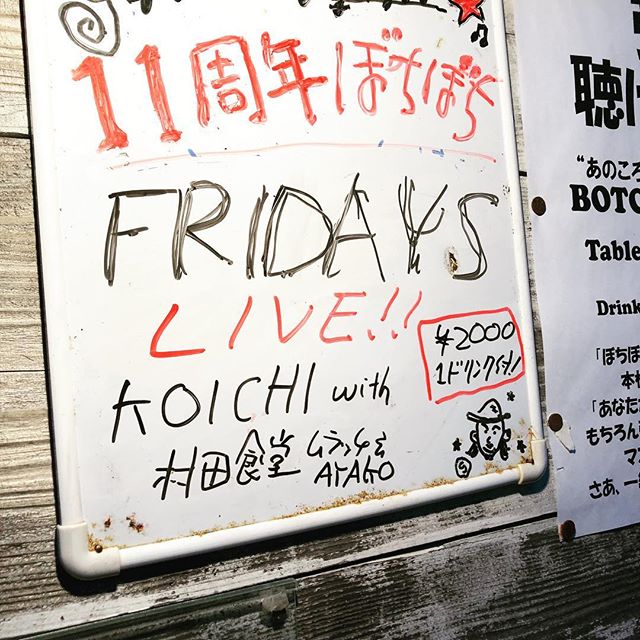 11周年ぼちぼち
FRIDAYS
LIVE!!
¥2000
1ドリンク付!
KOICHI with
村田食堂
ARAKO
聴
"あのころ
BOTC
Table
Drink
「ぼちぼ
本
「あなた
もちろん
マ
さあ、一